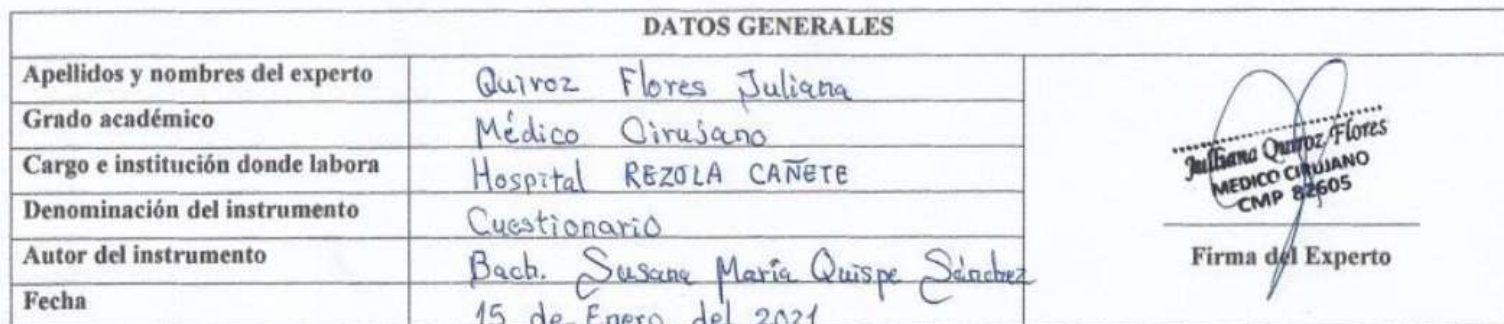 DATOS GENERALES
Apellidos y nombres del experto Quiroz Flores Juliana
Grado académico Médico Cirujano
Cargo e institución donde labora Hospital REZOLA CAÑETE
Denominación del instrumento Cuestionario
Autor del instrumento Bach. Susana María Quispe Sánchez
Fecha 15 de Enero del 2021
Julliana Quiroz Flores
MEDICO CIRUJANO
CMP 82605
Firma del Experto